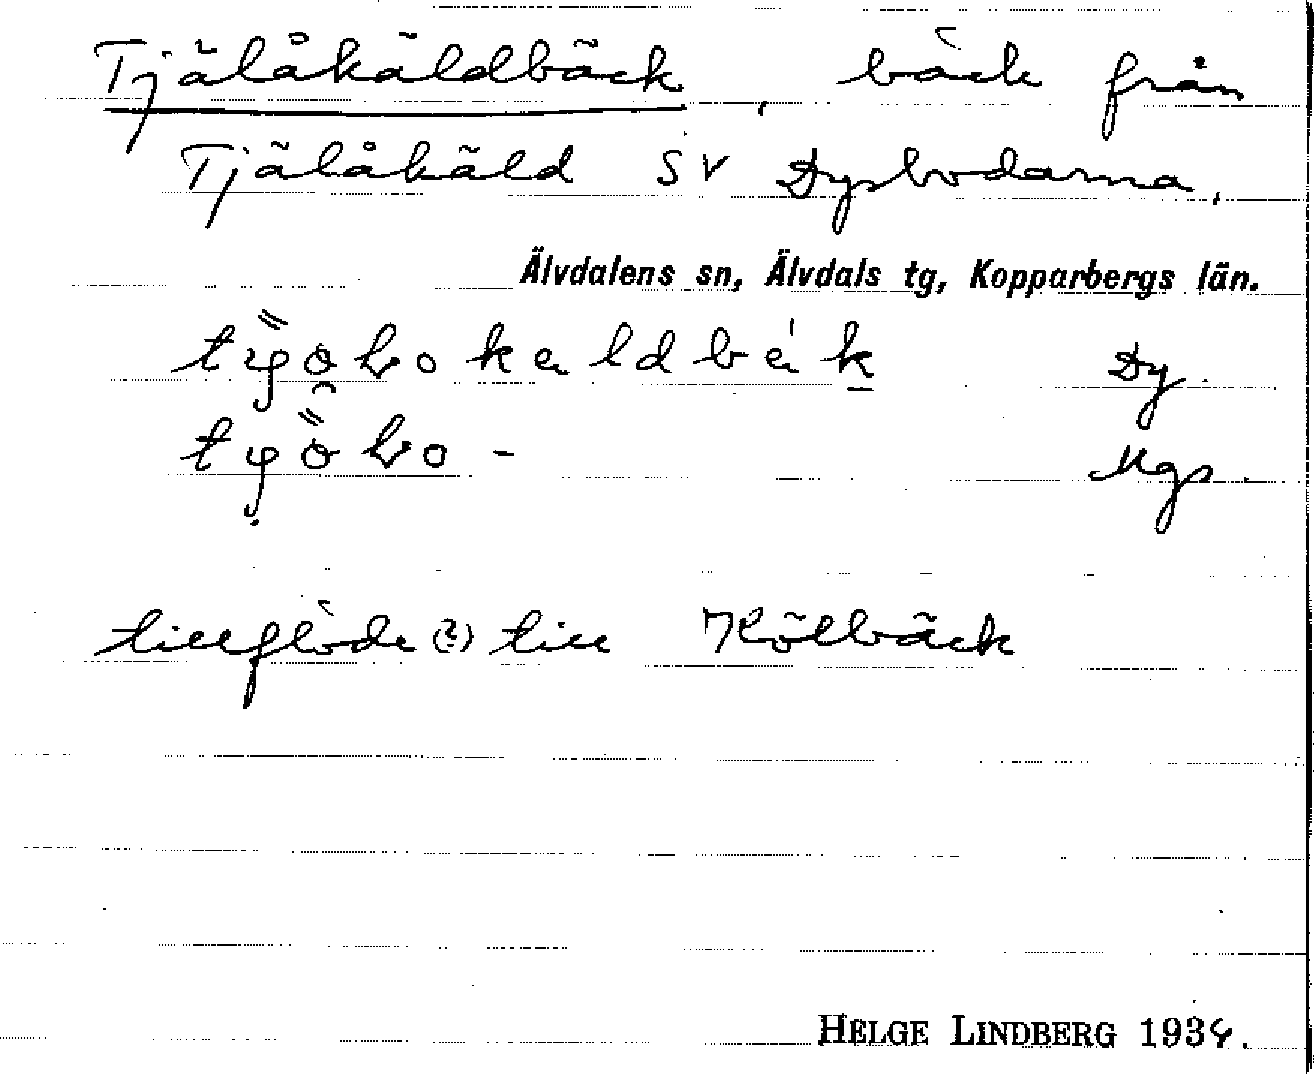 Tjälåkäldbäck, bäck från
Tjälåkäld SV Dysbodarna.
Älvdalens sn, Älvdals tg, Kopparbergs län.
Dy.
Mgs.
tillflöde (?) till Kölbäck
HELGE LINDBERG 1934.